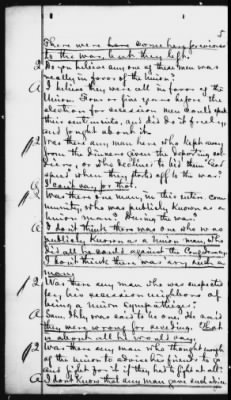 5
There were here some here previous
to the war, but they left.
Q Do you believe any one of these men was
really in favor of the Union?
A I believe they were all in favor of the
Union. Four or five years before the
election for secession men could
their sentiments, and did do it freely,
and fought about it.
Q Was there any man here who kept away
from the dinners given the
there, or who declines to bid them God
speed when they started off to the war?
A I can't say for that.
Q Was there one man, in this entire com-
munity, who was publicly known as a
Union man? During the war?
A I do not think there was one who was
publicly known as a Union man who
did all he could against the Confederacy.
I do not think there was any such a
man.
Q Was there any man who was suspected
by his secession neighbors of
being a Union sympathizer?
A Sam. was said to be one. He said
they were wrong for seceding. That
is about all he would say.
Q Was there any man who thought enough
of the Union to advise his friends to go
and fight for it if they had to fight at all?
A I do not know that any man gave such advice